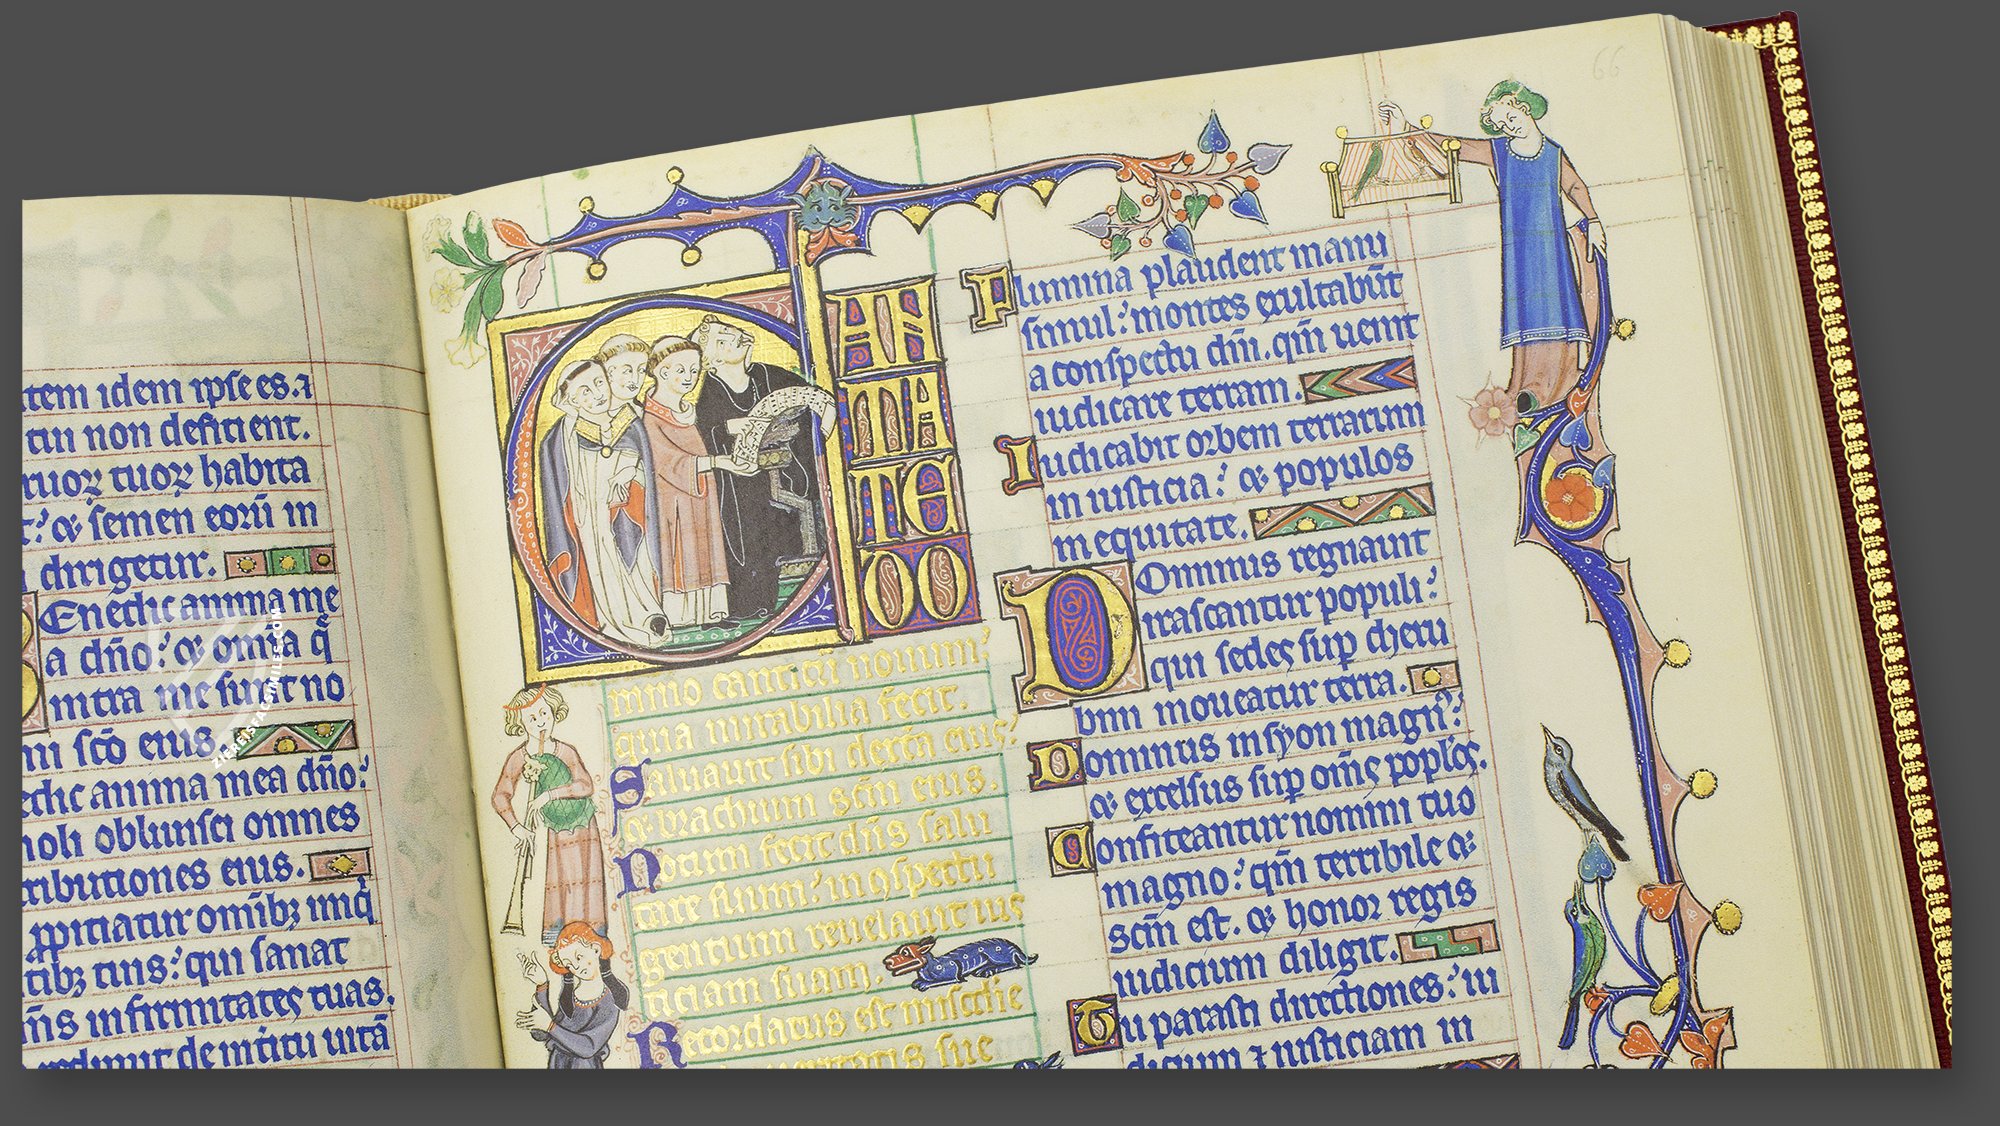 tem idem ipse es. ⁊
tui non deficient.
tuoꝝ habita
⁊ semen eorū in
dirigetur.
Benedic anima me
a dño: ⁊ om̄ia q̄
intra me sunt no
mini scō eius.
edic anima mea dño:
noli obliuisci omnes
tributiones eius.
ꝓpitiatur omībꝫ iniq̄
tibꝫ tuis: qui sanat
infirmitates tuas.
redimit de int̄itu uitā
66
CANTATE DO
mino canticū nouum:
quia mirabilia fecit.
Saluauit sibi dext̄a eius:
⁊ brachium scm̄ eius.
Notum fecit dñs salu
tare suum: in ꝯspectu
gentium reuelauit ius
ticiam suam.
Recordatus est miscd̄ie
sue
Flumina plaudent manu
simul: montes exultabūt
a conspectu dñi. qm̄ uenit
iudicare terram.
Iudicabit orbem terrarum
in iusticia: ⁊ populos
in equitate.
Dominus regnauit
irascantur populi:
qui sedes sup cheru
bim moueatur terra.
Dominus in syon magn᷒:
⁊ excelsus sup om̄s poplos.
Confiteantur nomini tuo
magno: qm̄ terribile ⁊
scm̄ est. ⁊ honor regis
iudicium diligit.
Tu parasti directiones: iu
dicium ⁊ iusticiam in
ZIEREIS FACSIMILES.COM